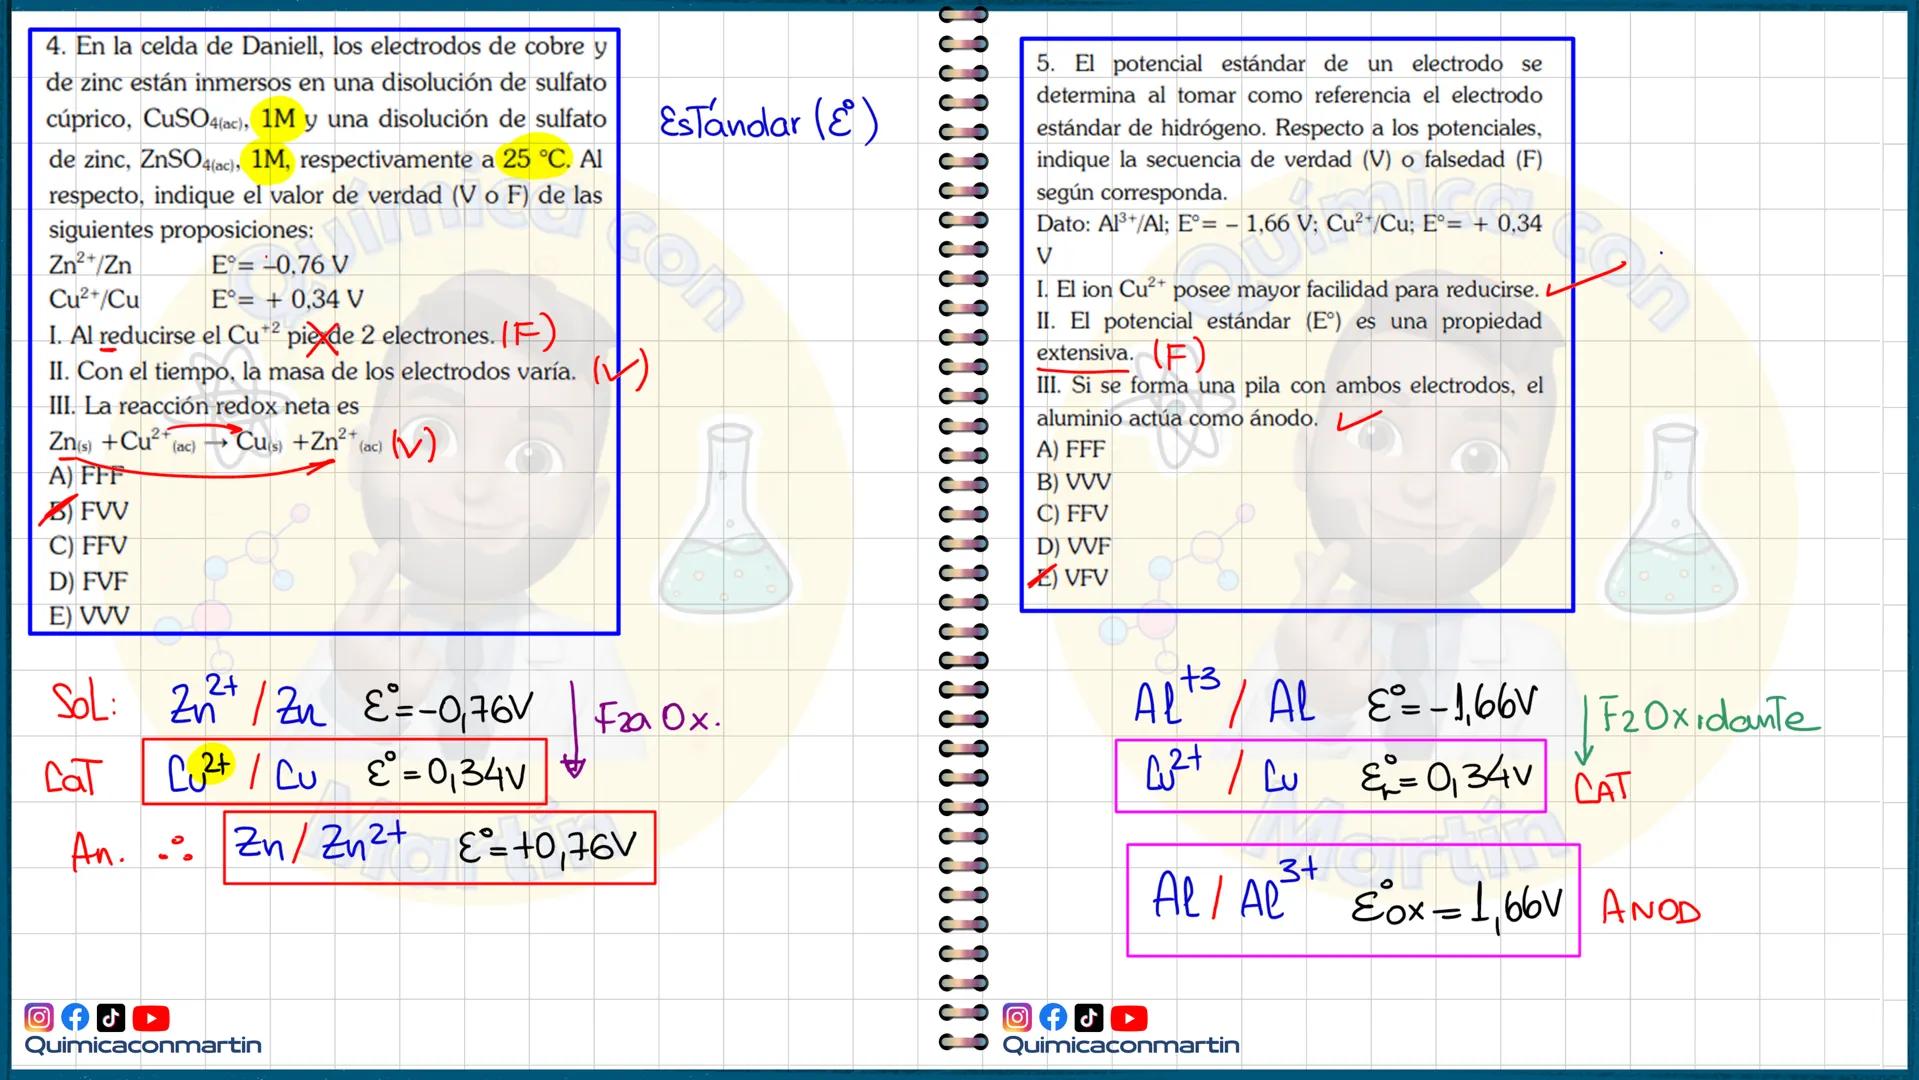 4. En la celda de Daniell, los electrodos de cobre y
de zinc están inmersos en una disolución de sulfato
cúprico, CuSO4(ac), 1M y una disolución de sulfato
de zinc, ZnSO4(ac), 1M, respectivamente a 25 °C. Al
respecto, indique el valor de verdad (V o F) de las
siguientes proposiciones:
Zn²⁺/Zn E°= –0,76 V
Cu²⁺/Cu E°= + 0,34 V
I. Al reducirse el Cu⁺² pierde 2 electrones. (F)
II. Con el tiempo, la masa de los electrodos varía. (V)
III. La reacción redox neta es
Zn(s) +Cu²⁺(ac) → Cu(s) +Zn²⁺(ac) (V)
A) FFF
B) FVV
C) FFV
D) FVF
E) VVV
Estándar (ε°)
Sol: Zn²⁺ / Zn ε°=-0,76V
Fza Ox.
CaT Cu²⁺ / Cu ε°=0,34v
An. ∴ Zn / Zn²⁺ ε°=+0,76V
Quimicaconmartin
5. El potencial estándar de un electrodo se
determina al tomar como referencia el electrodo
estándar de hidrógeno. Respecto a los potenciales,
indique la secuencia de verdad (V) o falsedad (F)
según corresponda.
Dato: Al³⁺/Al; E°= – 1,66 V; Cu²⁺/Cu; E°= + 0,34
V
I. El ion Cu²⁺ posee mayor facilidad para reducirse.
II. El potencial estándar (E°) es una propiedad
extensiva. (F)
III. Si se forma una pila con ambos electrodos, el
aluminio actúa como ánodo.
A) FFF
B) VVV
C) FFV
D) VVF
E) VFV
Al⁺³ / Al ε°=-1,66V
FzOxidante
Cu²⁺ / Cu ε°r=0,34v CAT
Al / Al³⁺ ε°ox=1,66V ANOD
Quimicaconmartin
Química con
Martín
Química con
Martín